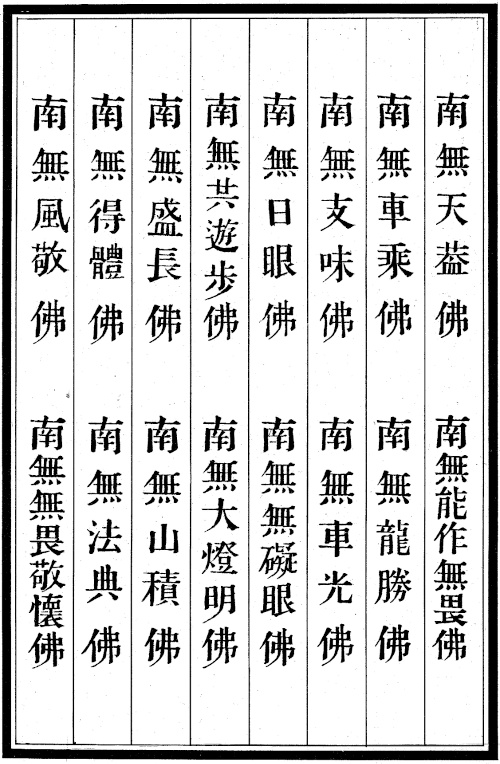 南無天葢佛 南無能作無畏佛
南無車乘佛 南無龍勝佛
南無支味佛 南無車光佛
南無日眼佛 南無無礙眼佛
南無共遊步佛 南無大燈明佛
南無盛長佛 南無山積佛
南無得體佛 南無法典佛
南無風敬佛 南無無畏敬懷佛